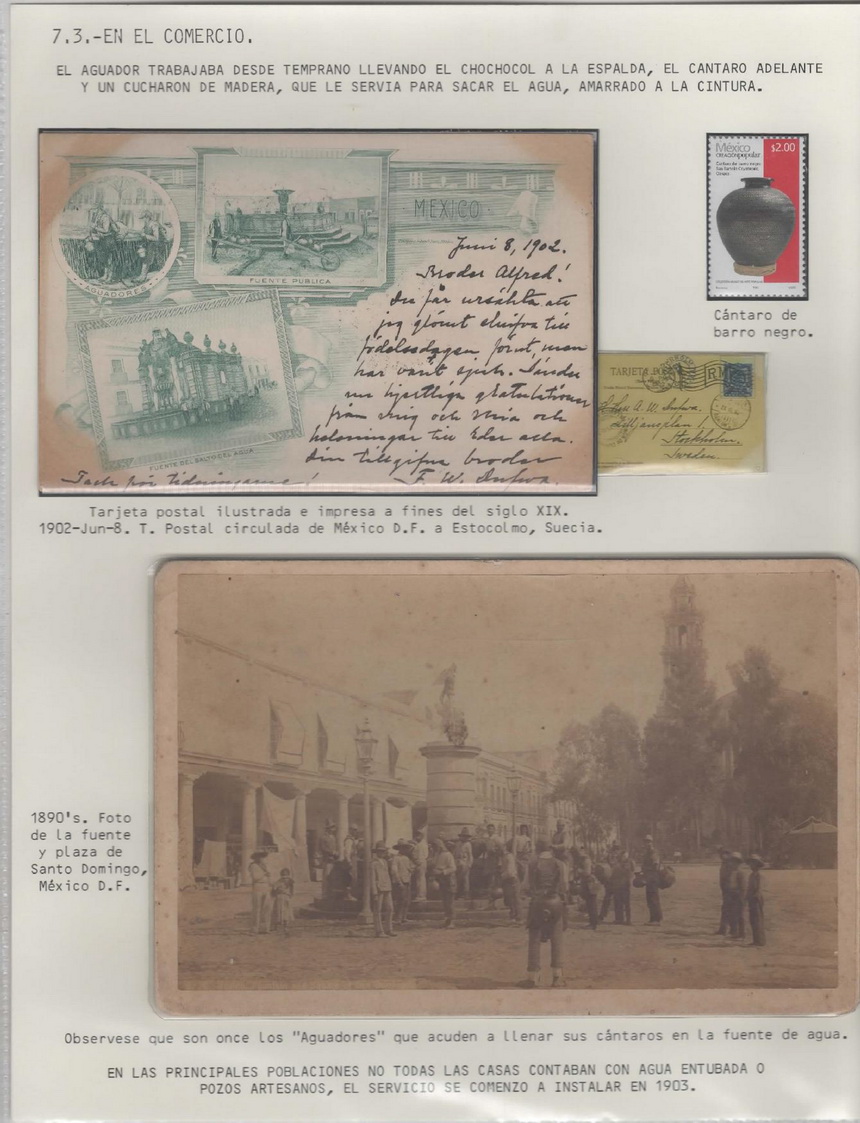 7.3.-EN EL COMERCIO.
EL AGUADOR TRABAJABA DESDE TEMPRANO LLEVANDO EL CHOCHOCOL A LA ESPALDA, EL CANTARO ADELANTE
Y UN CUCHARON DE MADERA, QUE LE SERVIA PARA SACAR EL AGUA, AMARRADO A LA CINTURA.
AGUADORES
FUENTE PUBLICA
MEXICO
FUENTE DEL SALTO EL AGUA
Juni 8, 1902.
Broder Alfred!
Du får ursäkta att
jag glömt skrifva till
födelsedagen förut, men
har varit sjuk. Sänder
nu hjertliga gratulationer
från mig och Mia och
helsningar till Eder alla.
Din tillgifne broder
F. W.
Tack för tidningarne!
México $2.00
creaciónpopular
Cántaro de barro negro
Cántaro de
barro negro.
TARJETA
RM
A. W.
Lilljansplan 1,
Stockholm.
Sweden.
Tarjeta postal ilustrada e impresa a fines del siglo XIX.
1902-Jun-8. T. Postal circulada de México D.F. a Estocolmo, Suecia.
1890's. Foto
de la fuente
y plaza de
Santo Domingo,
México D.F.
Observese que son once los "Aguadores" que acuden a llenar sus cántaros en la fuente de agua.
EN LAS PRINCIPALES POBLACIONES NO TODAS LAS CASAS CONTABAN CON AGUA ENTUBADA O
POZOS ARTESANOS, EL SERVICIO SE COMENZO A INSTALAR EN 1903.